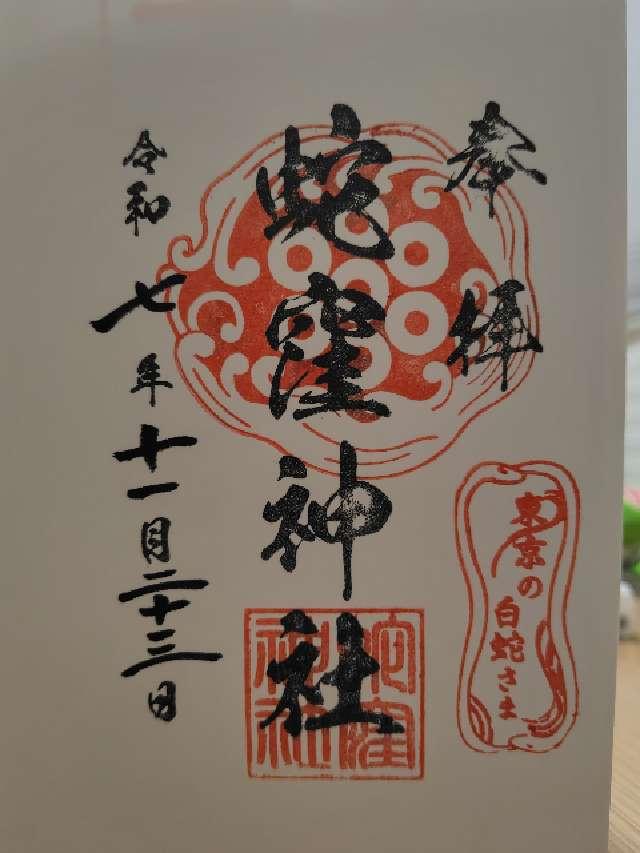 奉拝
蛇窪神社
蛇窪神社
東京の
白蛇さま
令和七年十一月二十三日